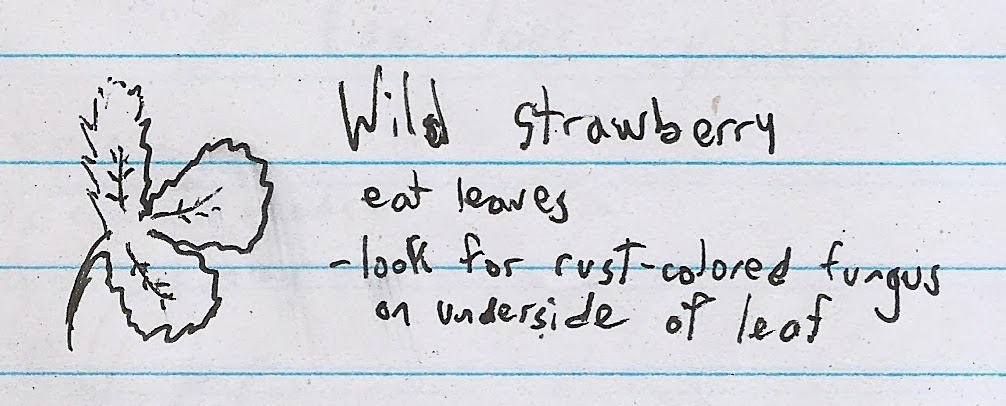 Wild strawberry
eat leaves
-look for rust-colored fungus
on underside of leaf